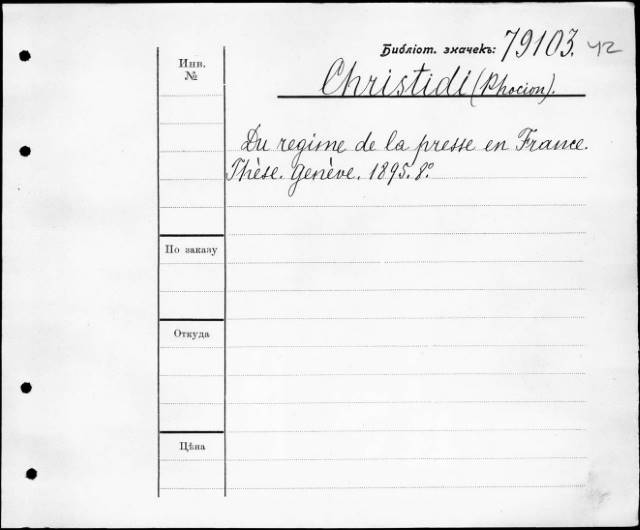 Библіот. значекъ: 79103. 42
Инв.
№
Christidi (Phocion).
Du regime de la presse en France.
Thèse. Genève. 1895. 8°
По заказу
Откуда
Цѣна